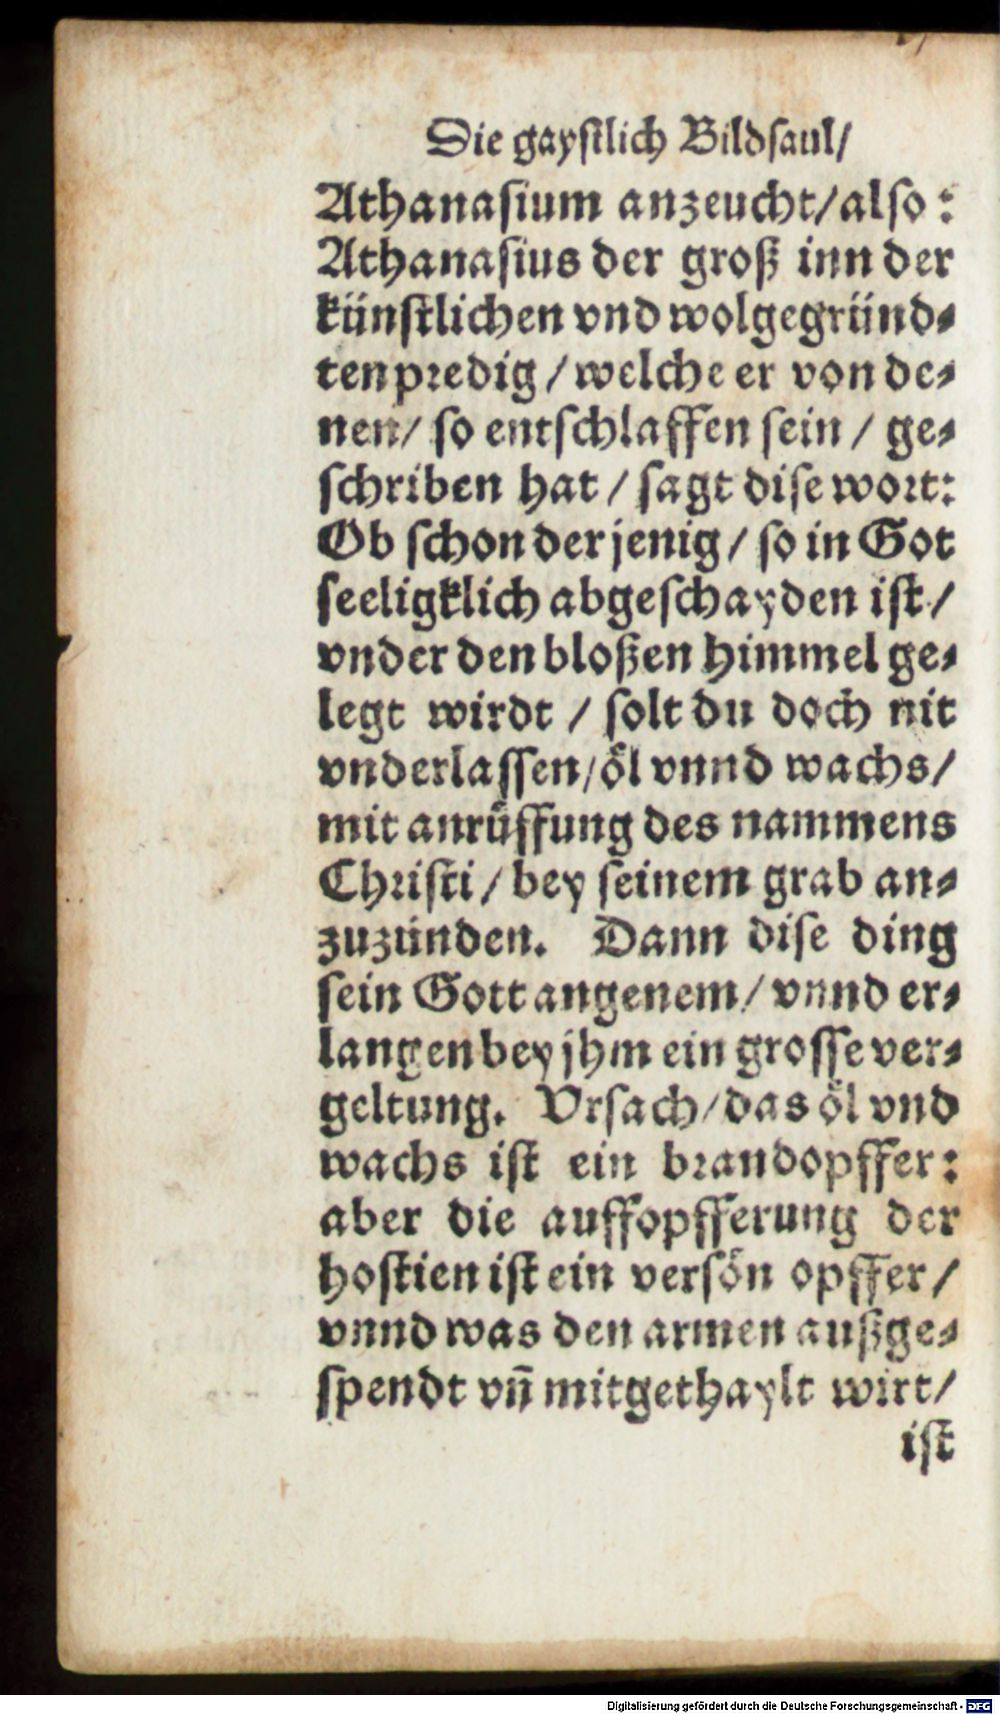 Die gaystlich Bildsaul/
Athanasium anzeucht/also:
Athanasius der groß inn der
künstlichen vnd wolgegründ-
ten predig / welche er von de-
nen/ so entschlaffen sein / ge-
schriben hat / sagt dise wort:
Ob schon der jenig / so in Got
seeligklich abgeschayden ist /
vnder den bloßen himmel ge-
legt wirdt / solt du doch nit
vnderlassen/öl vnnd wachs/
mit anrüffung des nammens
Christi / bey seinem grab an-
zuzünden. Dann dise ding
sein Gott angenem/ vnnd er-
langen bey jhm ein grosse ver-
geltung. Vrsach/das öl vnd
wachs ist ein brandopffer:
aber die auffopfferung der
hostien ist ein versön opffer/
vnnd was den armen außge-
spendt vn̄ mitgethaylt wirt/
ist
Digitalisierung gefördert durch die Deutsche Forschungsgemeinschaft - DFG